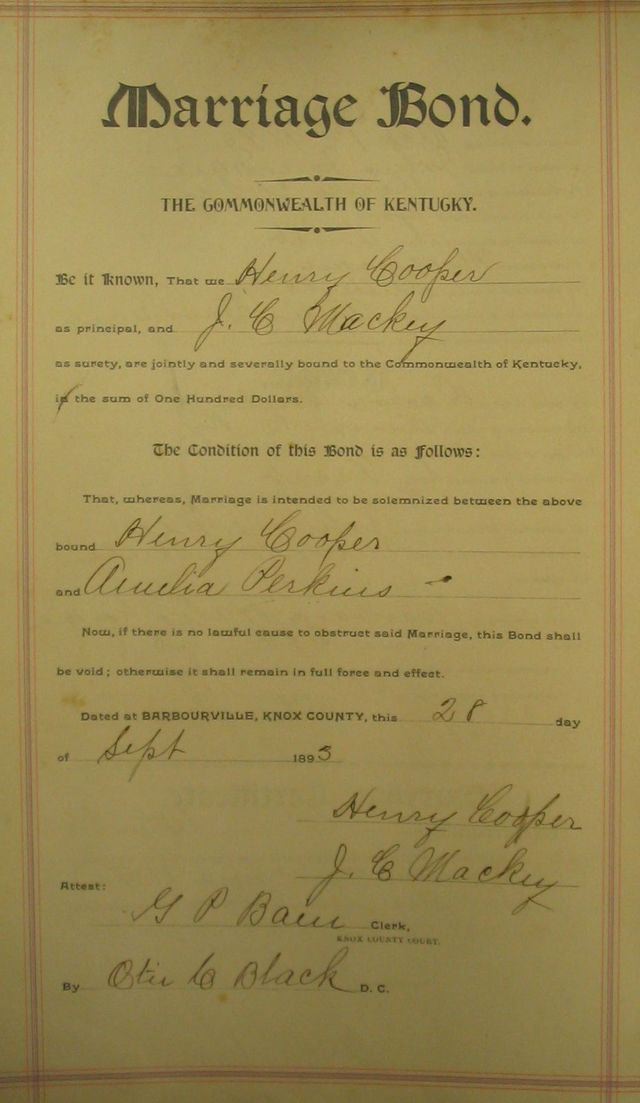 Marriage Bond.
THE COMMONWEALTH OF KENTUCKY.
Be it Known, That we Henry Cooper
as principal, and J. C Mackey
as surety, are jointly and severally bound to the Commonwealth of Kentucky,
in the sum of One Hundred Dollars.
The Condition of this Bond is as Follows:
That, whereas, Marriage is intended to be solemnized between the above
bound Henry Cooper
and Amelia Perkins
Now, if there is no lawful cause to obstruct said Marriage, this Bond shall
be void; otherwise it shall remain in full force and effect.
Dated at BARBOURVILLE, KNOX COUNTY, this 28 day
of Sept 1893
Henry Cooper
J. C Mackey
Attest:
G P Bain Clerk,
KNOX COUNTY COURT.
By Black D. C.